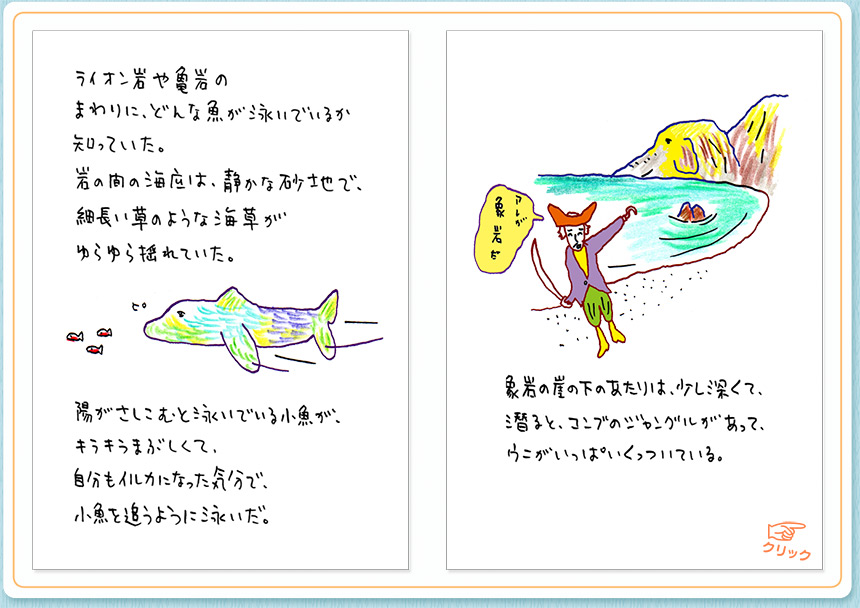 ライオン岩や亀岩の
まわりに、どんな魚が泳いでいるか
知っていた。
岩の間の海底は、静かな砂地で、
細長い草のような海草が
ゆらゆら揺れていた。
ピ°
陽がさしこむと泳いでいる小魚が、
キラキラまぶしくて、
自分もイルカになった気分で、
小魚を追うように泳いだ。
アレが
象岩だ
象岩の崖の下のあたりは、少し深くて、
潜ると、コンブのジャングルがあって、
ウニがいっぱいくっついている。
クリック